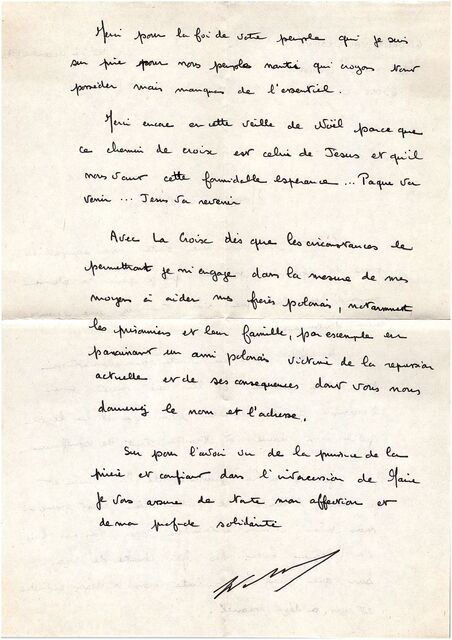 Merci pour la foi de votre peuple qui je suis
sur prie pour nos peuples nantis qui croyons tout
posséder mais manques de l'essentiel.
Merci encore en cette veille de Noël parce que
ce chemin de croix est celui de Jesus et qu'il
nous vaut cette formidable espérance... Paque va
venir... Jesus va revenir
Avec La Croix dès que les circonstances le
permettront je m'engage dans la mesure de mes
moyens à aider mes frères polonais, notamment
les prisonniers et leur famille, par exemple en
parrainant un ami polonais victime de la repression
actuelle et de ses consequences dont vous nous
donnerez le nom et l'adresse.
Sur pour l'avoir vu de la puissance de la
prière et confiant dans l'intercession de Marie
je vous assure de toute mon affection et
de ma profonde solidarité